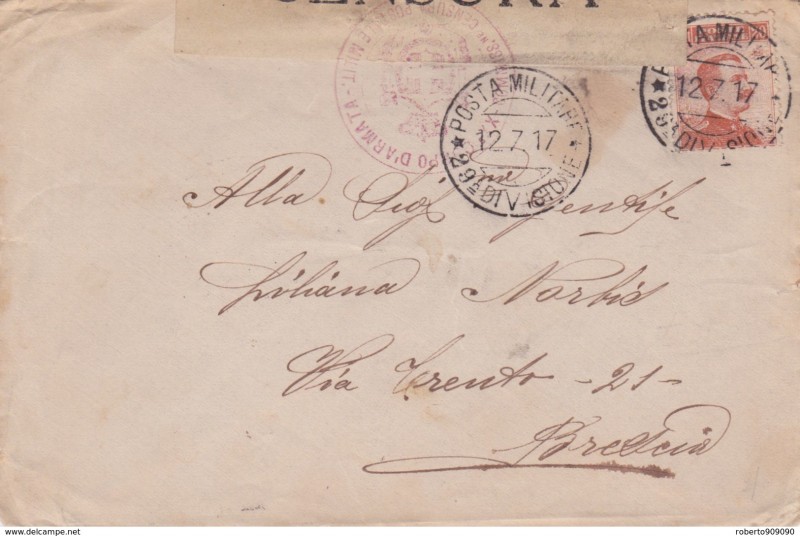 CENSURA
POSTA MILITARE
12.7.17
29ª DIVISIONE
POSTA MILITAR
12.7.17
29ª DIVISIONE
PO D'ARMATA
Alla Sigᵐᵃ Gentile
Liliana Norbis
Via Trento - 21 -
Brescia
delcampe.net
roberto909090